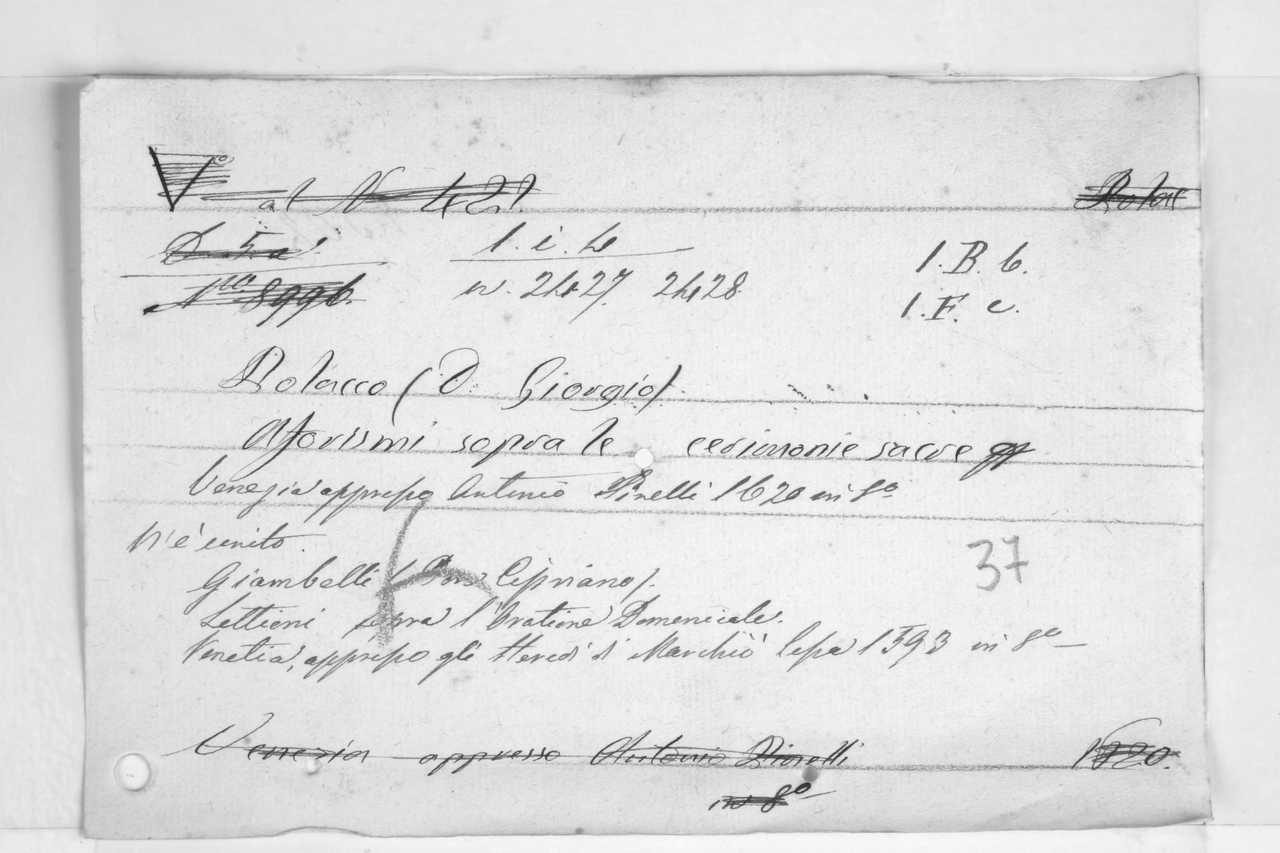 Vo al N 421
1. i. 4
1. B. b.
No 8996.
n. 2427. 2428
1. F. c.
Polacco (D. Giorgio)
Aforismi sopra le cerimonie sacre
Venezia appresso Antonio Pinelli 1620 in 8o
V'è unito.
37
Giambelli (Don Cipriano).
Lettioni sopra l'Oratione Domenicale.
Venetia, appresso gli Heredi di Marchiò Sessa 1593 in 8o
Venezia appresso Antonio Pinelli 1620.
in 8o